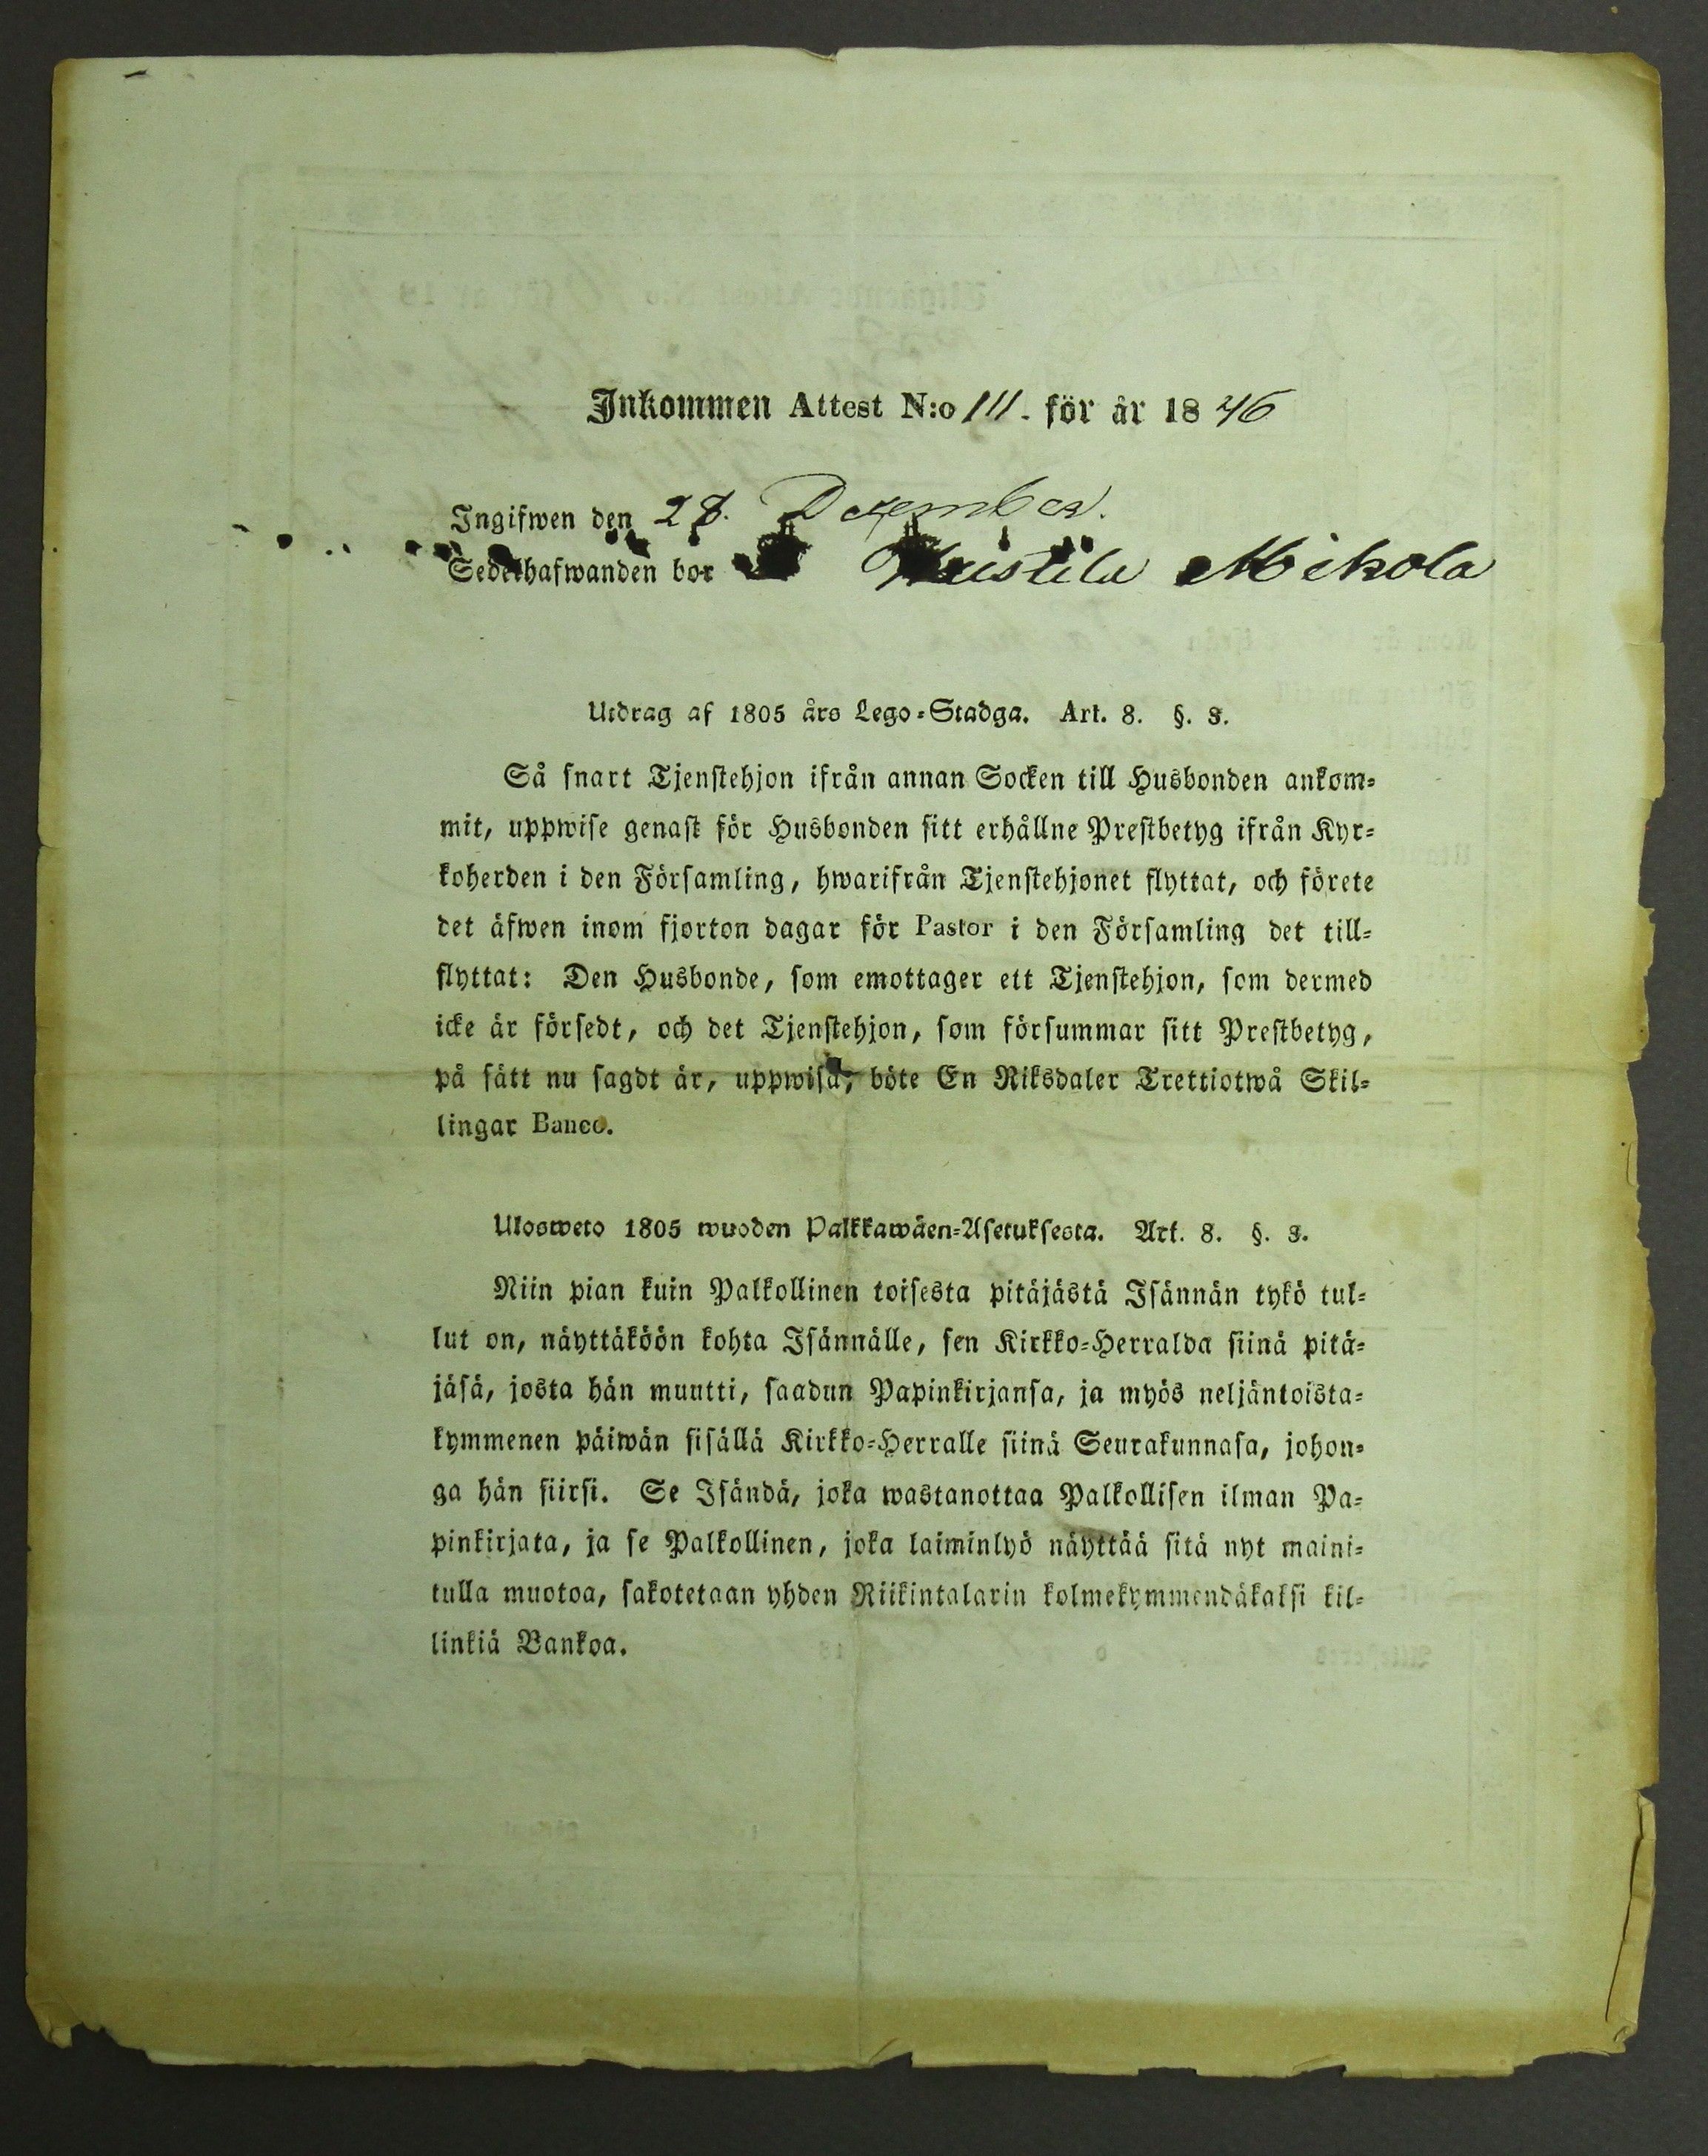 Inkommen Attest N:o 111. för år 1846
Ingifwen den 28. December.
Sedelhafwanden bor Mikola
Utdrag af 1805 års Lego-Stadga. Art. 8. §. 3.
Så snart Tjenstehjon ifrån annan Socken till Husbonden ankom-
mit, uppwise genast för Husbonden sitt erhållne Prestbetyg ifrån Kyr-
koherden i den Församling, hwarifrån Tjenstehjonet flyttat, och förete
det äfwen inom fjorton dagar för Pastor i den Församling det till-
flyttat: Den Husbonde, som emottager ett Tjenstehjon, som dermed
icke är försedt, och det Tjenstehjon, som försummar sitt Prestbetyg,
på sätt nu sagdt är, uppwisa, böte En Riksdaler Trettiotwå Skil-
lingar Banco.
Ulosweto 1805 wuoden Palkkawäen-Asetuksesta. Art. 8. §. 3.
Niin pian kuin Palkollinen toisesta pitäjästä Isännän tykö tul-
lut on, näyttäköön kohta Isännälle, sen Kirkko-Herralda siinä pitä-
jäsä, josta hän muutti, saadun Papinkirjansa, ja myös neljäntoista-
kymmenen päiwän sisällä Kirkko-Herralle siinä Seurakunnasa, johon-
ga hän siirsi. Se Isändä, joka wastanottaa Palkollisen ilman Pa-
pinkirjata, ja se Palkollinen, joka laiminlyö näyttää sitä nyt maini-
tulla muotoa, sakotetaan yhden Riikintalarin kolmekymmendäkaksi kil-
linkiä Bankoa.